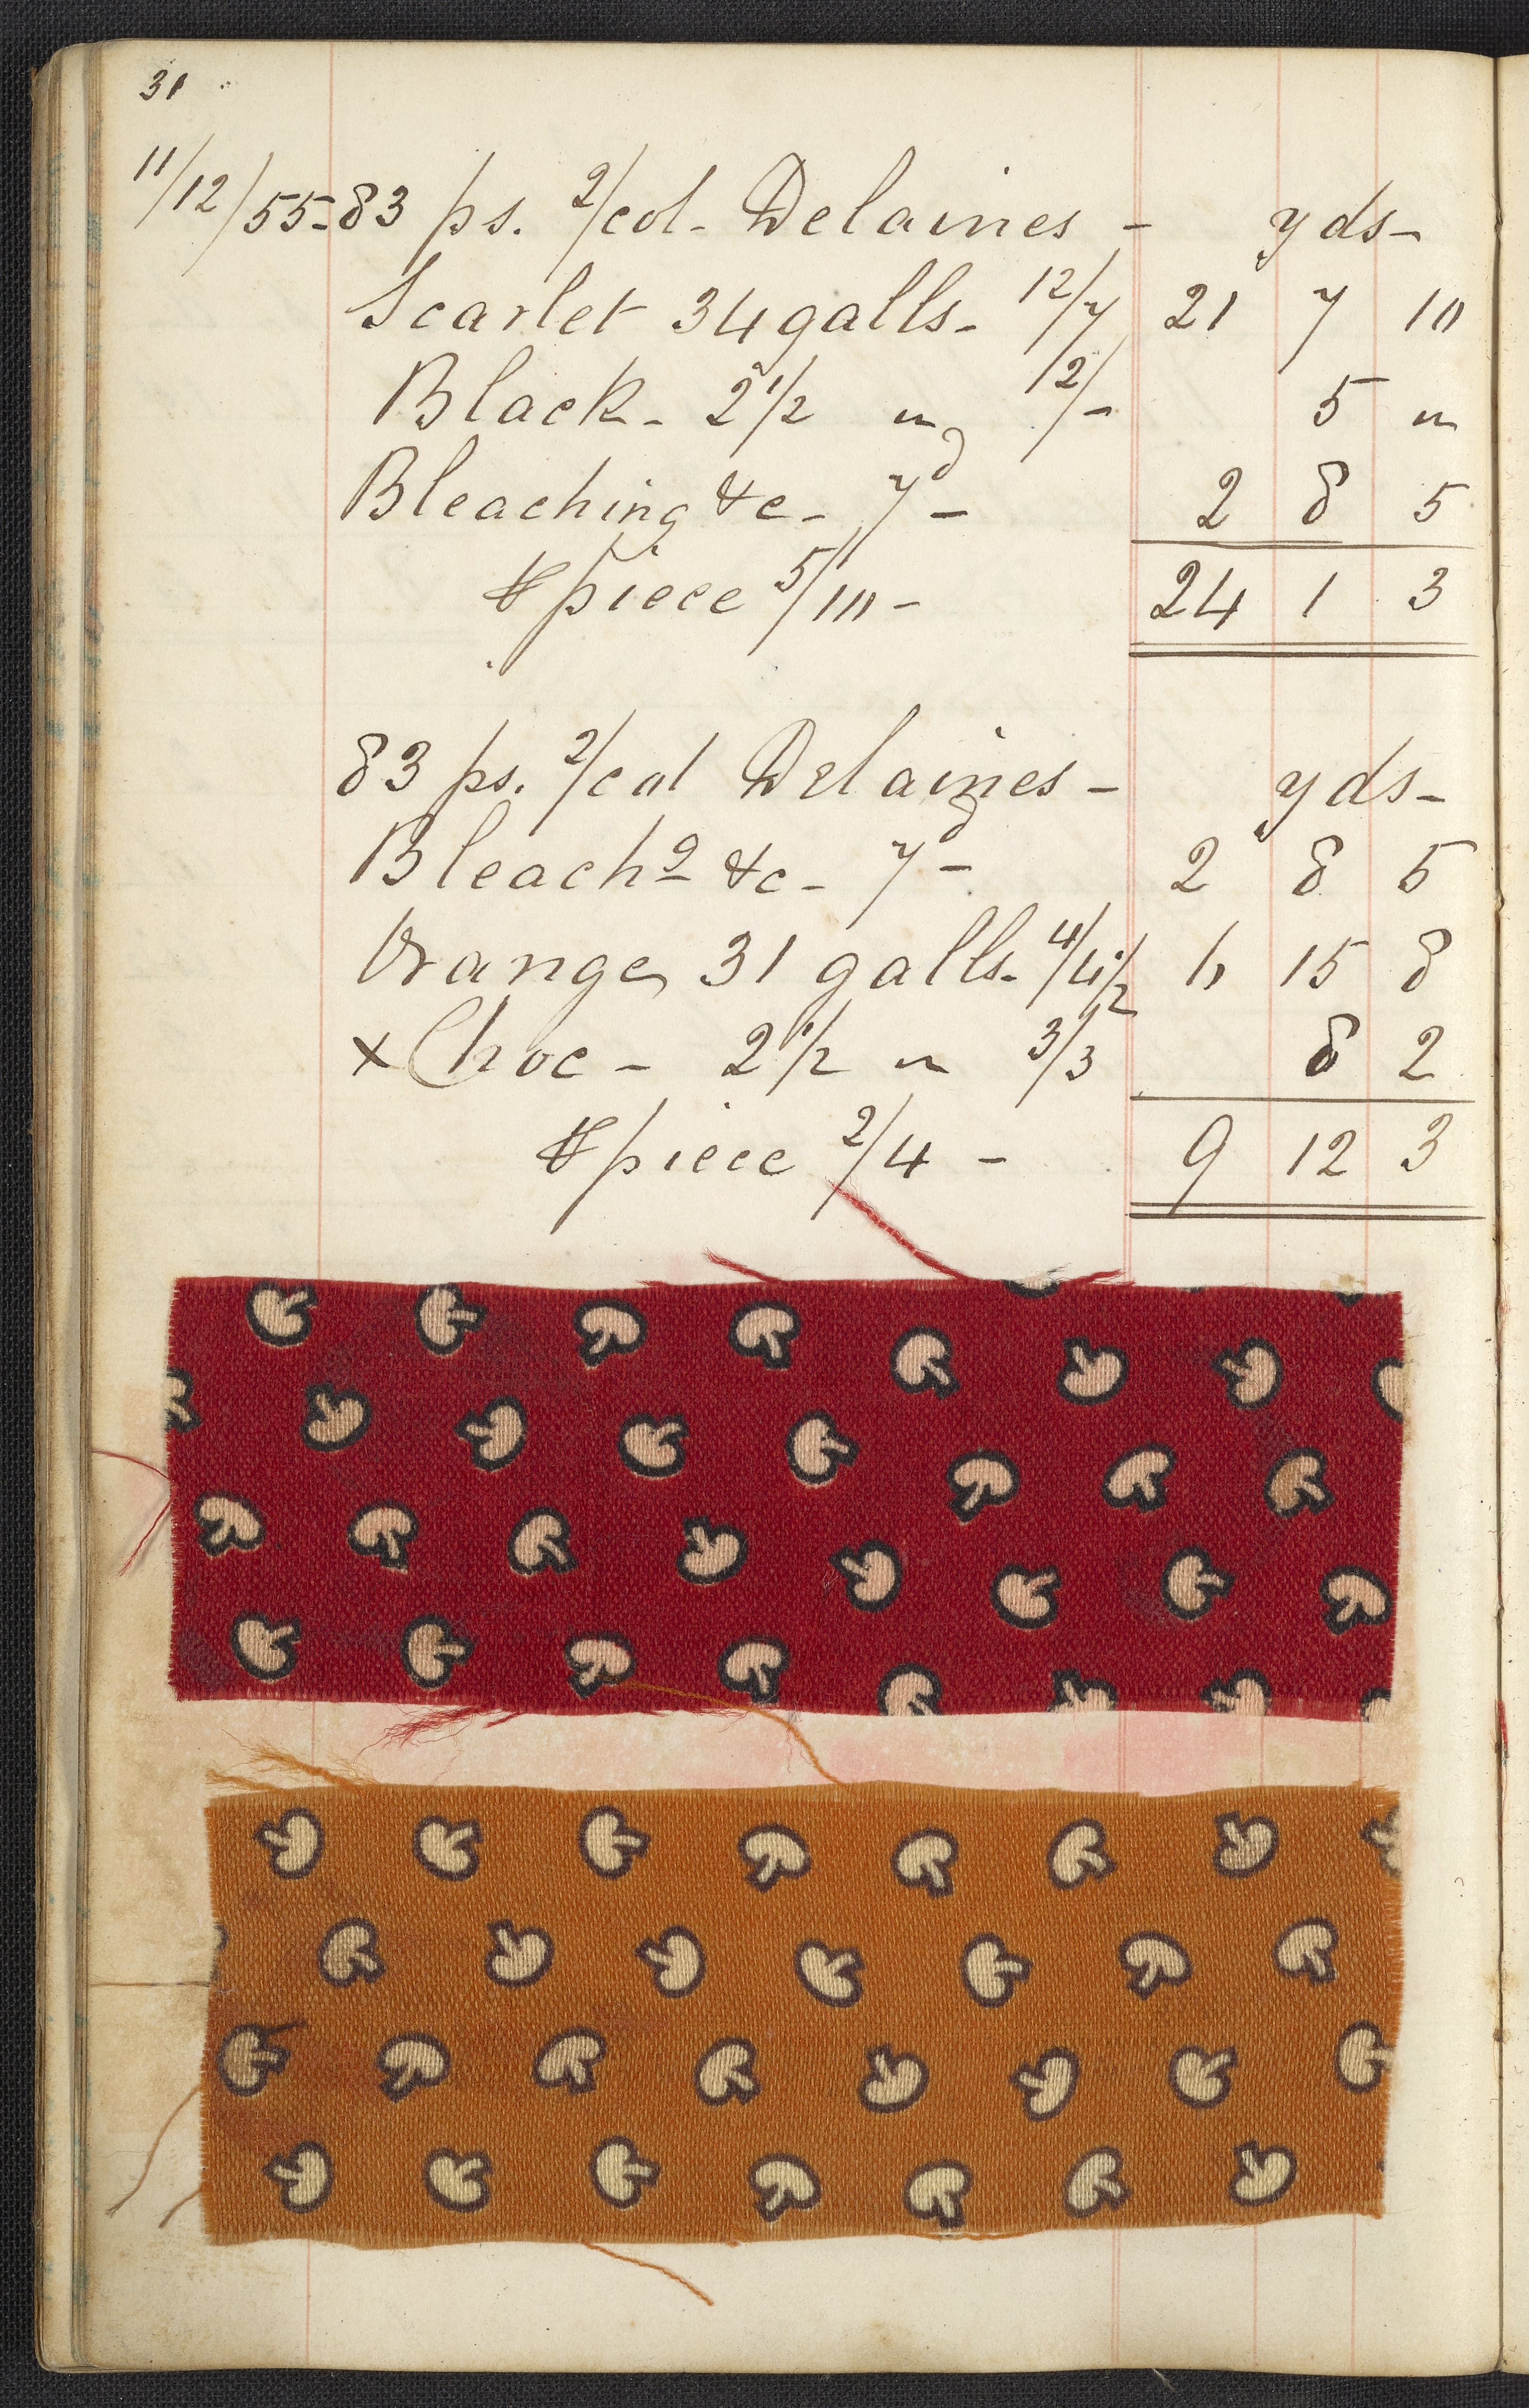 31
11/12/55- 83 ps. 2/col- Delaines - yds-
Scarlet 34 galls- 12/7 21 7 10
Black - 2 1/2 " 2/- 5 "
Bleaching &c - 7d - 2 8 5
⅌ piece 5/10 - 24 1 3
83 ps. 2/col Delaines - yds-
Bleachg &c - 7d - 2 8 5
Orange 31 galls. 4/4 1/2 6 15 8
x Choc - 2 1/2 " 3/3 8 2
⅌ piece 2/4 - 9 12 3